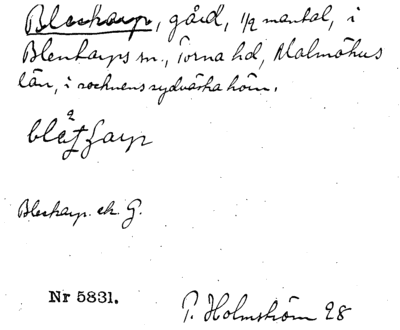 Bleckarp, gård, 1/2 mantal, i
Blentarps sn., Torna hd, Malmöhus
län, i socknens sydvästra hörn.
Bleckarp ek. G.
Nr 5831.
P. Holmström 28